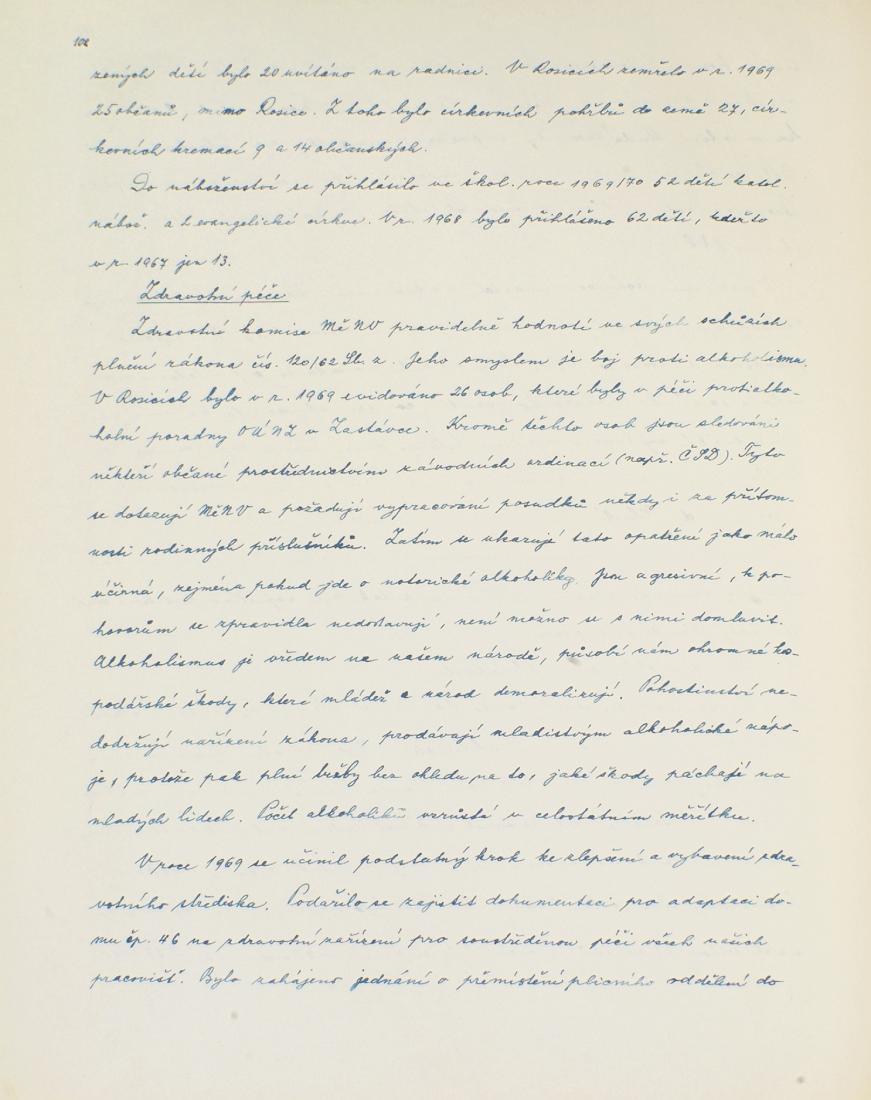 102
zených dětí bylo 20 uvítáno na radnici. V Rosicích zemřelo v r. 1969
25 občanů, mimo Rosice. Z toho bylo církevních pohřbů do země 27, cír-
kevních kremací 9 a 14 občanských.
Do náboženství se přihlásilo ve škol. roce 1969/70 52 dětí katol.
nábož. a 2 evangelické církve. V r. 1968 bylo přihlášeno 62 dětí, kdežto
v r. 1967 jen 13.
Zdravotní péče
Zdravotní komise MěNV pravidelně hodnotí ve svých schůzích
plnění zákona čís. 120/62 Sb. z. Jeho smyslem je boj proti alkoholismu.
V Rosicích bylo v r. 1969 evidováno 26 osob, které byly v péči protialko-
holní poradny OÚNZ v Zastávce. Kromě těchto osob jsou sledováni
někteří občané prostřednictvím závodních ordinací (např. ČSD). Tyto
se dotazují MěNV a požadují vypracování posudků někdy i za přítom-
nosti rodinných příslušníků. Zatím se ukazuje tato opatření jako málo
účinná, zejména pokud jde o notorické alkoholiky. Jsou agresivní, k po-
hovorům se zpravidla nedostavují, není možno se s nimi domluvit.
Alkoholismus je vředem na našem národě, působí nám ohromné ho-
podářské škody, které mládež a národ demoralizují. Pohostinství ne-
dodržují nařízení zákona, prodávají mladistvým alkoholické nápo-
je, protože pak plní tržby bez ohledu na to, jaké škody páchají na
mladých lidech. Počet alkoholiků vzrůstá v celostátním měřítku.
V roce 1969 se učinil podstatný krok ke zlepšení a vybavení zdra-
votního střediska. Podařilo se zajistit dokumentaci pro adaptaci do-
mu čp. 46 na zdravotní zařízení pro soustředěnou péči všech našich
pracovišť. Bylo zahájeno jednání o přemístění plicního oddělení do